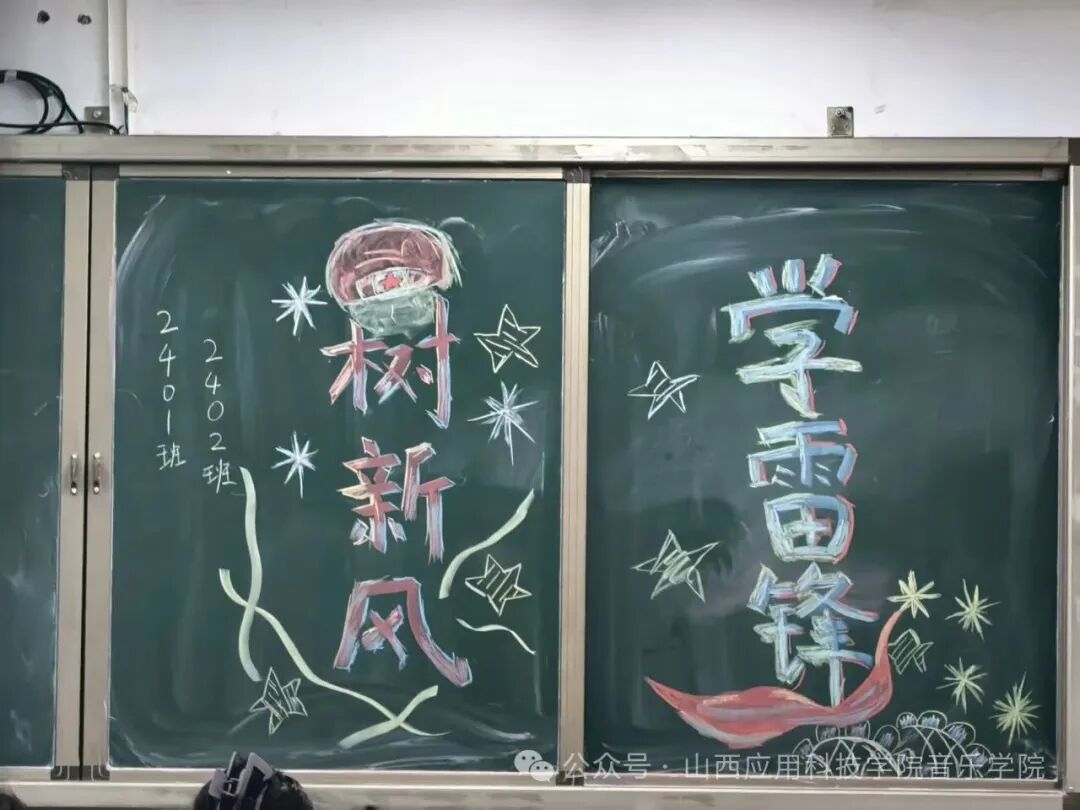 学雷锋
树新风
2402班
2401班
公众号·山西应用科技学院音乐学院